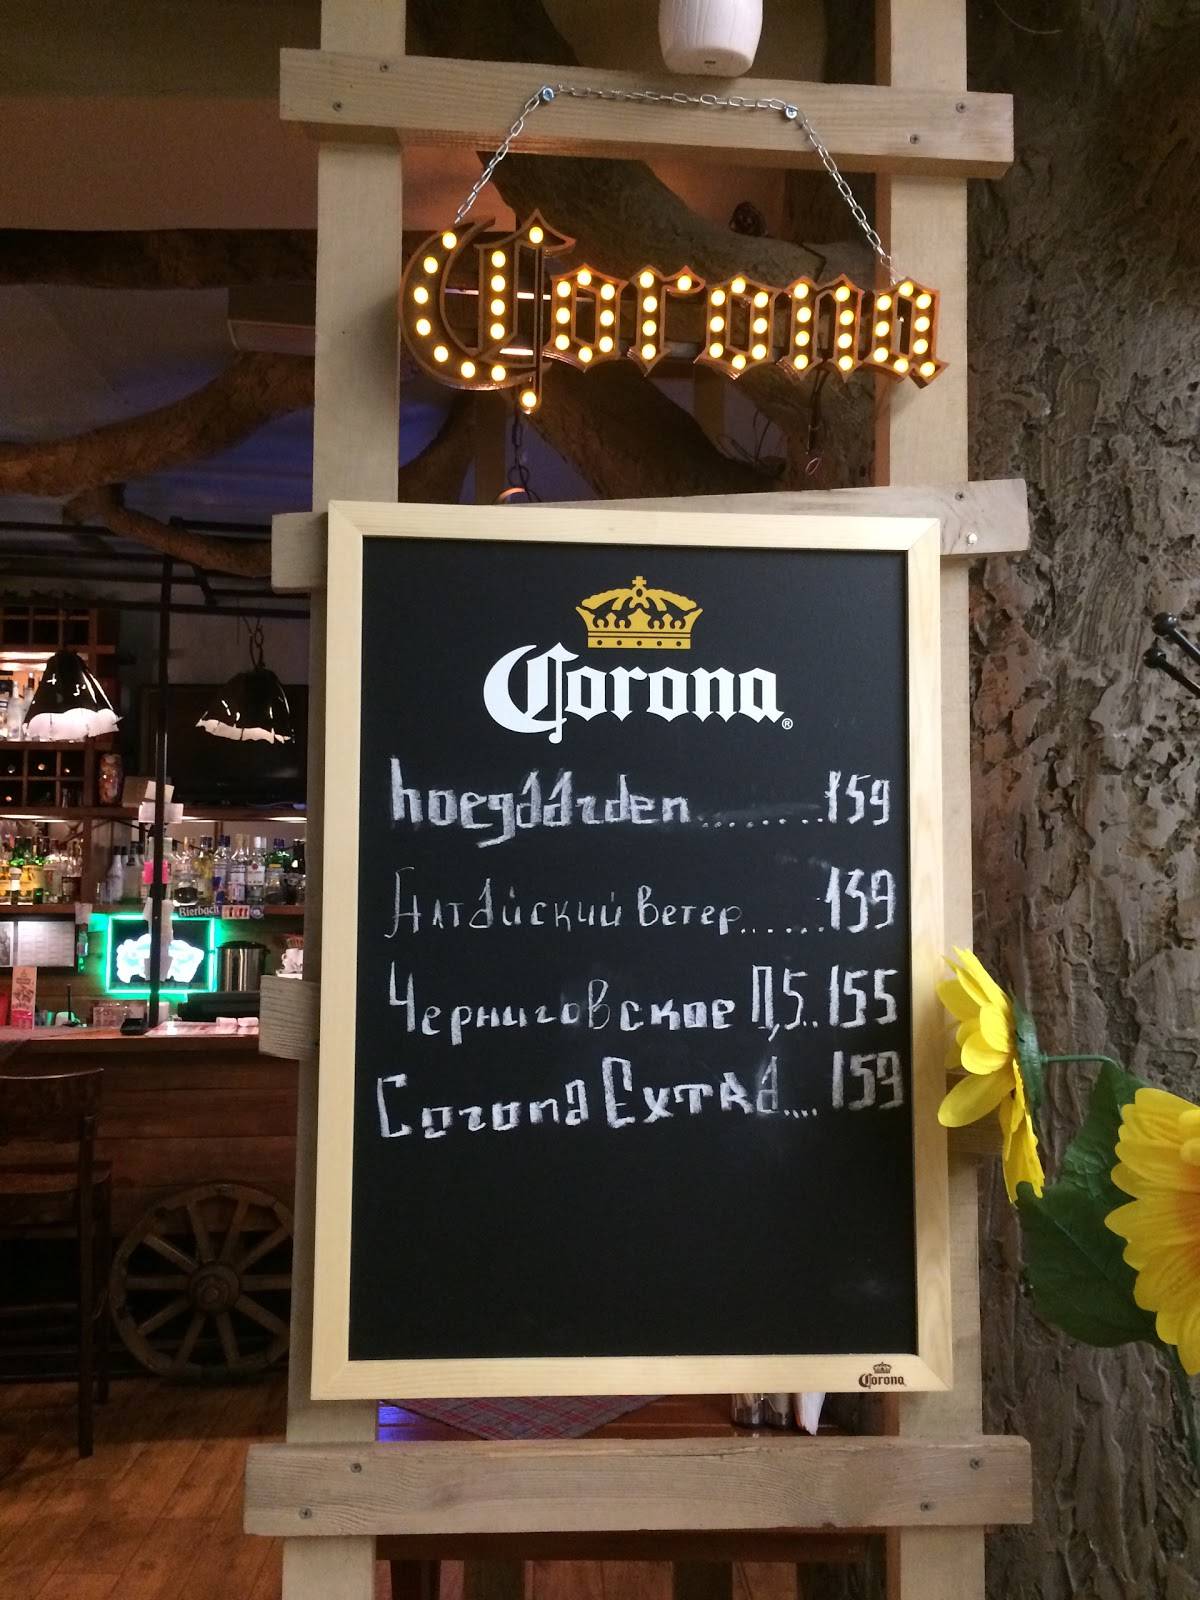 Corona
Corona®
hoegaarden.........159
Алтайский Ветер......139
Черниговское 0,5..155
Corona Extra....159
Corona
Bierbach